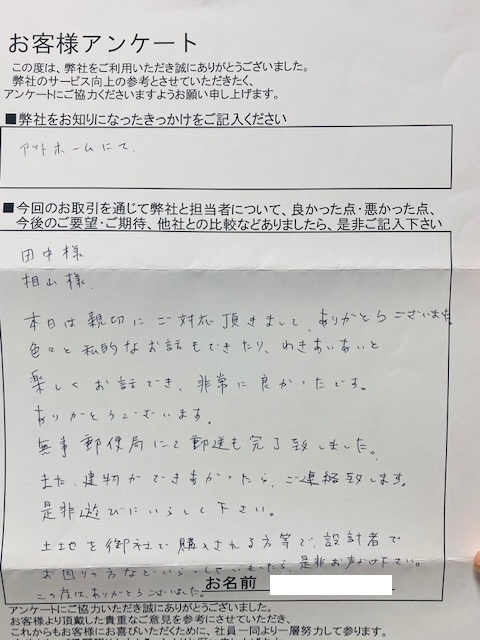 お客様アンケート
この度は、弊社をご利用いただき誠にありがとうございました。
弊社のサービス向上の参考とさせていただきたく、
アンケートにご協力くださいますようお願い申し上げます。
■弊社をお知りになったきっかけをご記入ください
アットホームにて.
■今回のお取引を通じて弊社と担当者について、良かった点・悪かった点、
今後のご要望・ご期待、他社との比較などありましたら、是非ご記入下さい
田中様
相山様.
本日は親切にご対応頂きまして、ありがとうございました
色々と私的なお話もできたり、わきあいあいと
楽しくお話でき、非常に良かったです。
ありがとうございます。
無事郵便局にて郵送も完了致しました。
また、建物ができあがったら、ご連絡致します。
是非遊びにいらして下さい。
土地を御社で購入される方等で、設計者で
お困りの方など いらっしていましたら、是非お声かけ下さい。
この度は、ありがとうございました。
お名前
アンケートにご協力いただき誠にありがとうございました。
お客様より頂戴した貴重なご意見を参考にさせていただき、
これからもお客様にお喜びいただくために、社員一同より一層努力して参ります。